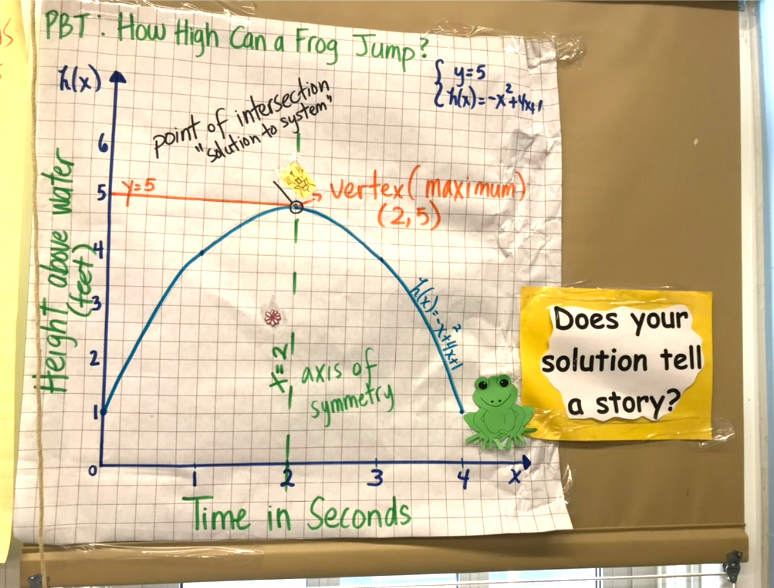 PBT: How High Can a Frog Jump?
h(x)
y=5
h(x)=-x²+4x+1
point of intersection
"solution to system"
6
5
y=5
vertex (maximum)
(2,5)
Height above water
(feet)
4
3
h(x)=-x²+4x+1
2
x=2
axis of
symmetry
1
0
1
2
3
4
x
Time in Seconds
Does your
solution tell
a story?